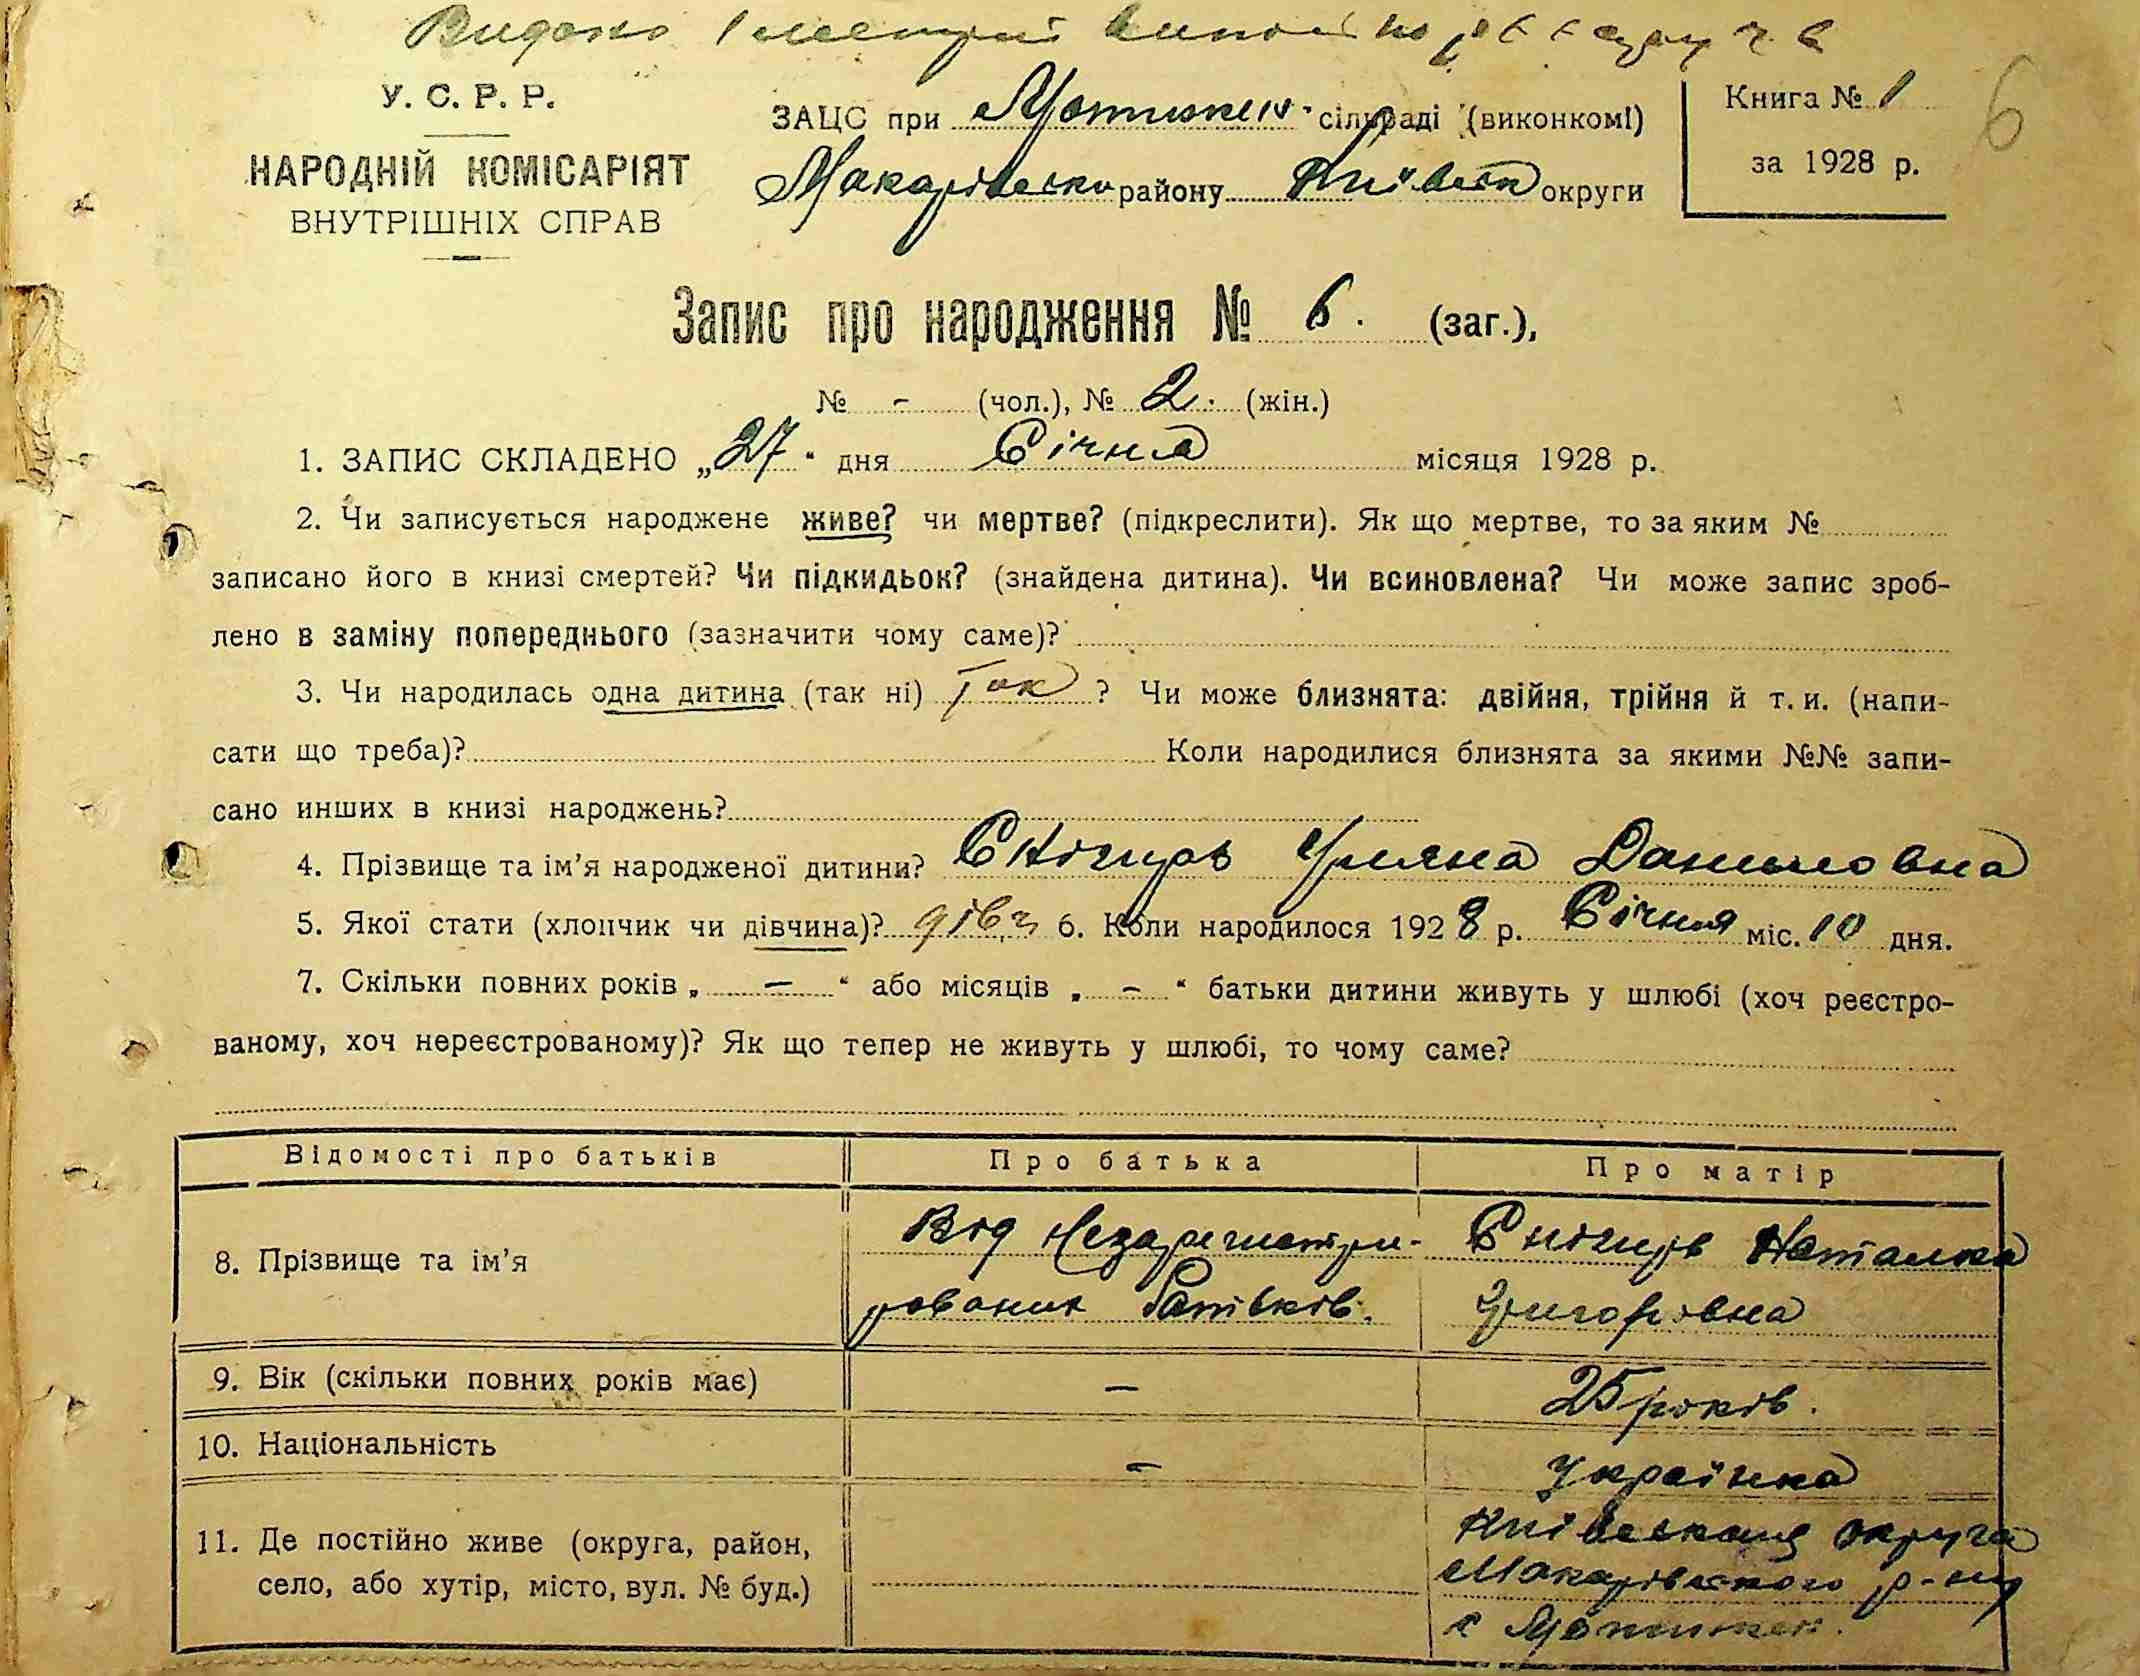 Видано
У. С. Р. Р.
НАРОДНІЙ КОМІСАРІЯТ
ВНУТРІШНІХ СПРАВ
ЗАЦС при Мотижен. сільраді (виконкомі)
Макарівськ району Київськ округи
Книга № 1
за 1928 р.
6
Запис про народження № 6. (заг.),
№ - (чол.), № 2. (жін.)
1. ЗАПИС СКЛАДЕНО „27" дня Січня місяця 1928 р.
2. Чи записується народжене живе? чи мертве? (підкреслити). Як що мертве, то за яким №
записано його в книзі смертей? Чи підкидьок? (знайдена дитина). Чи всиновлена? Чи може запис зроб-
лено в заміну попереднього (зазначити чому саме)?
3. Чи народилась одна дитина (так ні) Так? Чи може близнята: двійня, трійня й т. и. (напи-
сати що треба)? Коли народилися близнята за якими №№ запи-
сано инших в книзі народжень?
4. Прізвище та ім'я народженої дитини? Снігирь Уляна Даниловна
5. Якої стати (хлопчик чи дівчина)? дівч 6. Коли народилося 1928 р. Січня міс. 10 дня.
7. Скільки повних років „ — " або місяців „ - " батьки дитини живуть у шлюбі (хоч реєстро-
ваному, хоч нереєстрованому)? Як що тепер не живуть у шлюбі, то чому саме?
Відомості про батьків Про батька Про матір
8. Прізвище та ім'я
Від незарегистри-
рованих батьків.
Снігирь Наталка
Григоровна
9. Вік (скільки повних років має) — 25 років.
10. Національність — Українка
11. Де постійно живе (округа, район,
село, або хутір, місто, вул. № буд.)
округа
Макарівського р-ну
с Мотижен.